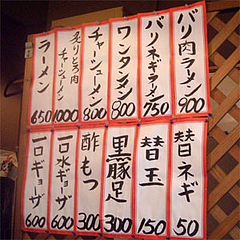 バリ肉ラーメン 900
バリネギラーメン 750
ワンタンメン 800
チャーシューメン 800
炙りとろ肉チャーシューメン 1000
ラーメン 650
替ネギ 50
替玉 150
黒豚足 300
酢もつ 300
一口水ギョーザ 600
一口ギョーザ 600